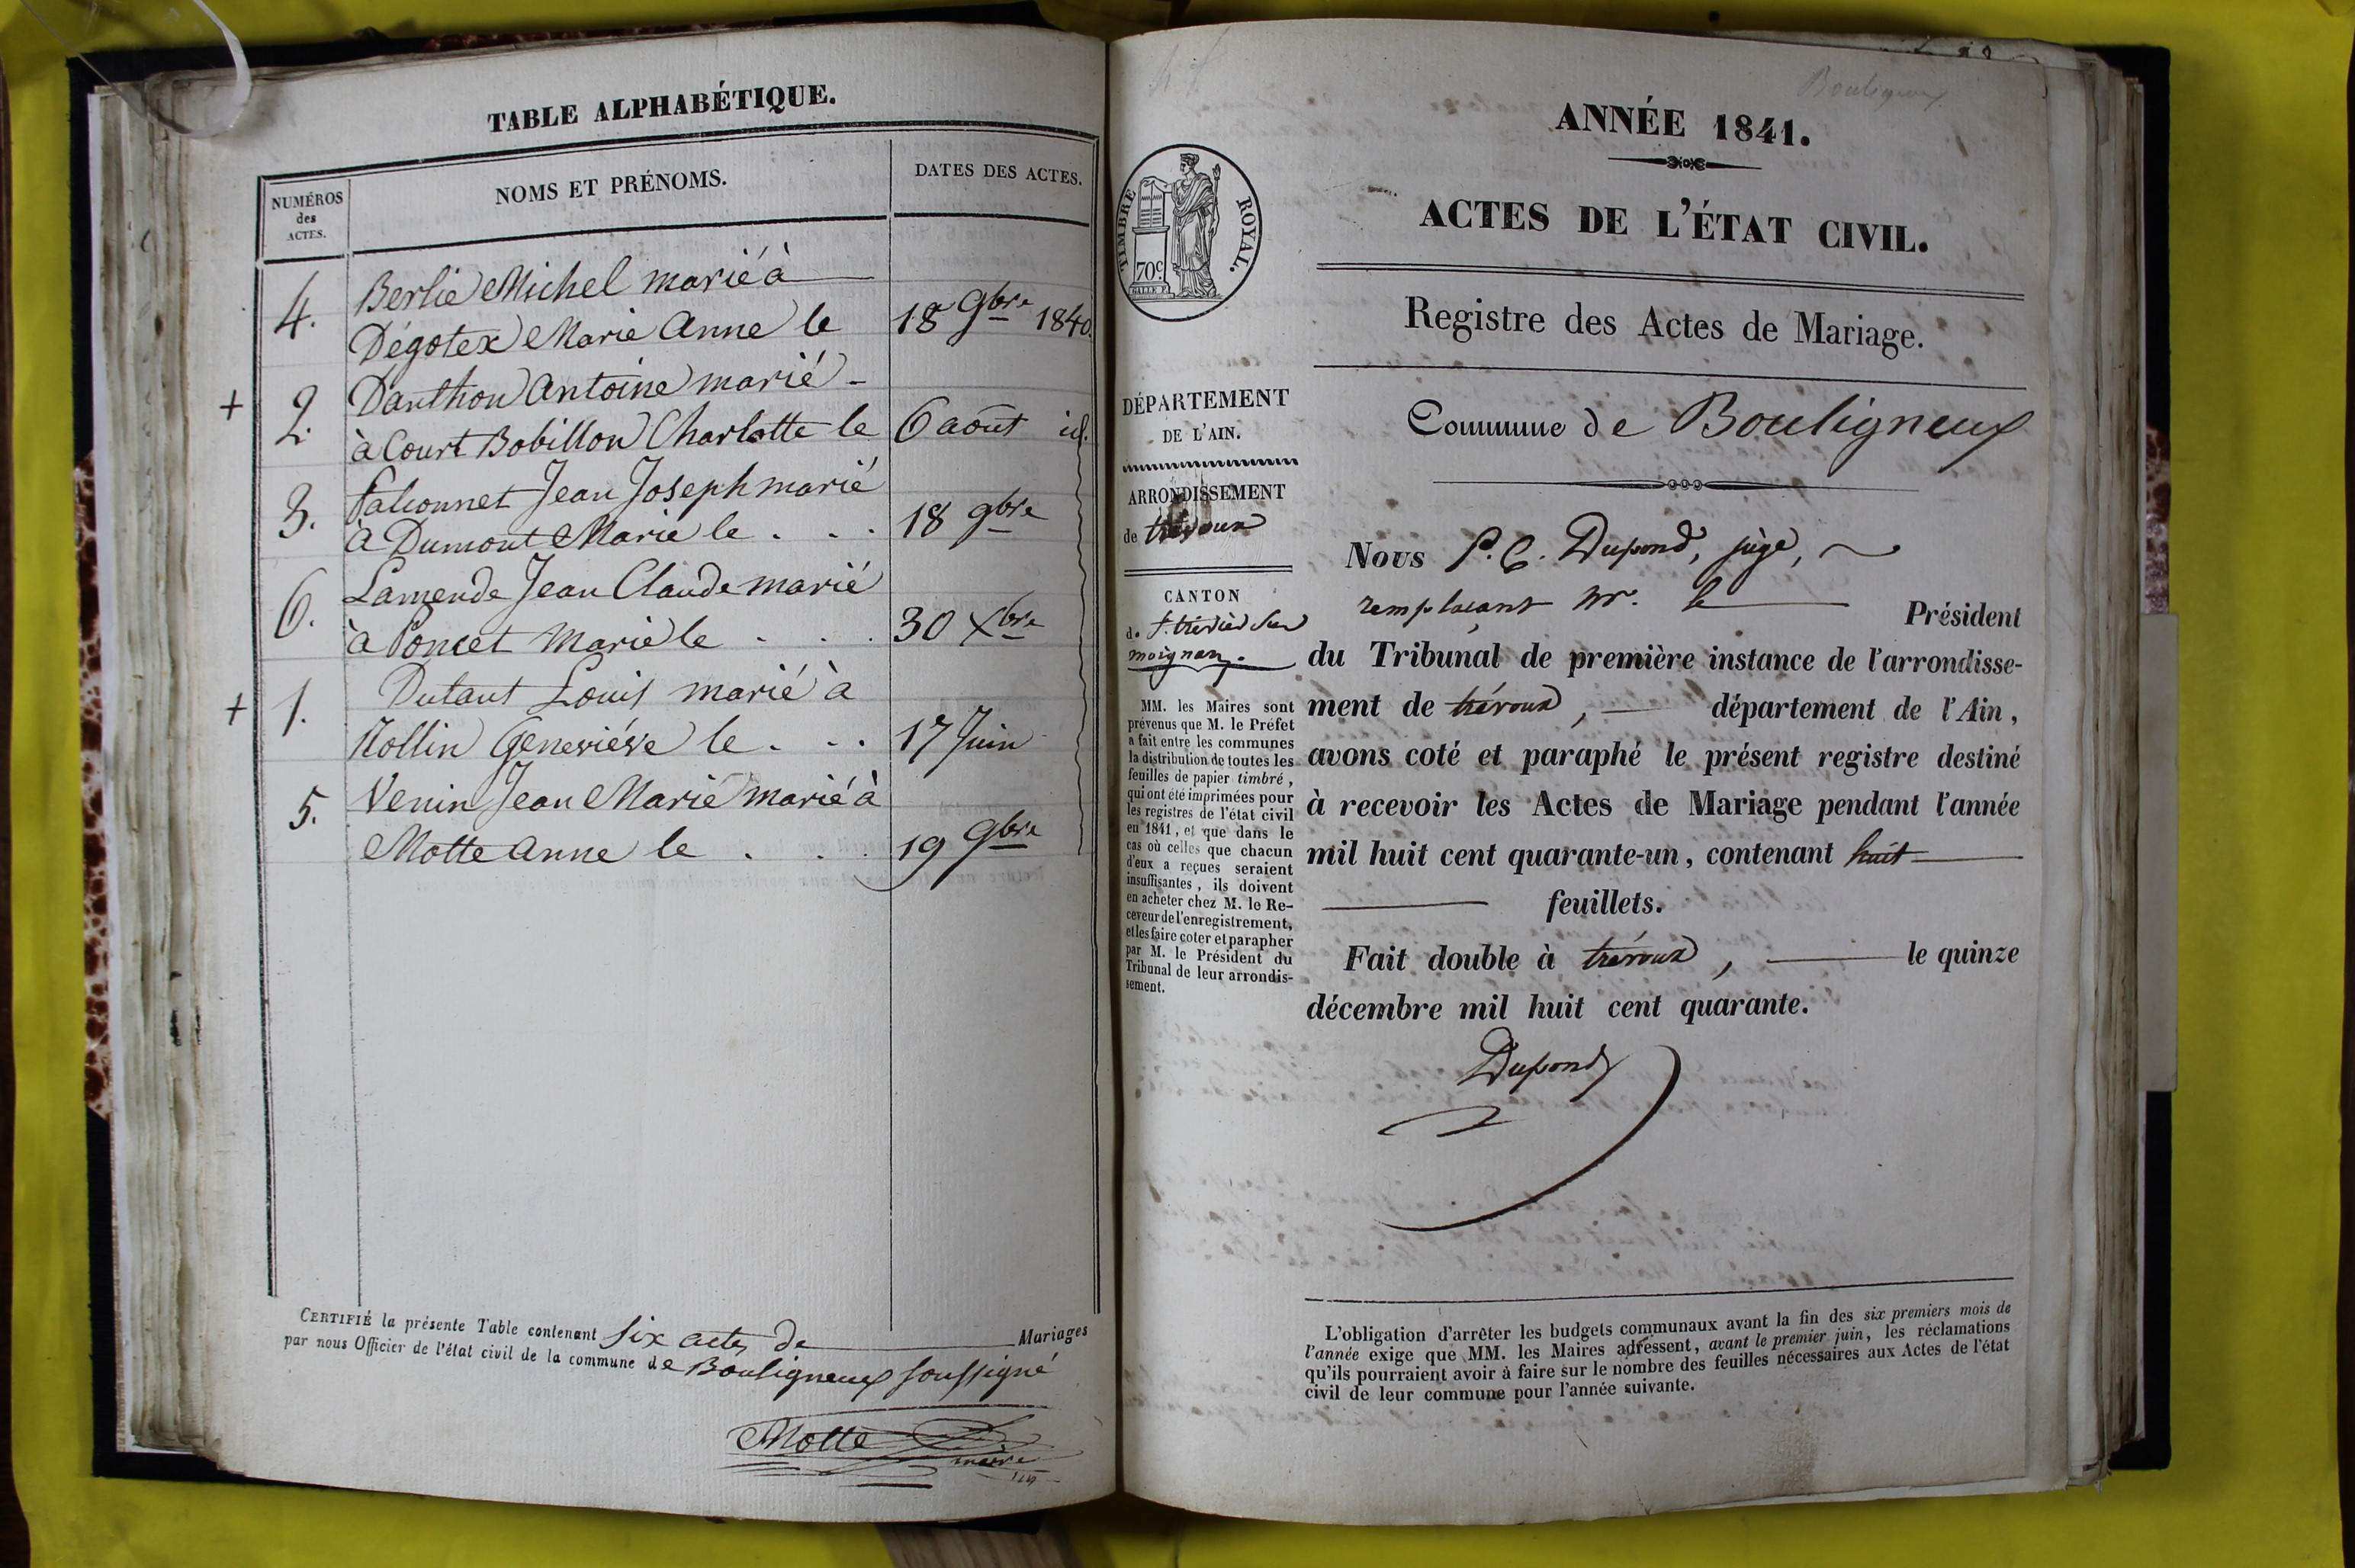 TABLE ALPHABÉTIQUE.
NUMÉROS
des
ACTES.
NOMS ET PRÉNOMS.
DATES DES ACTES.
4. Berlie Michel marié à
Dégotex Marie Anne le 18 9bre 1840.
+ 2. Danthon Antoine marié -
à Court Bobillon Charlotte le 6 août id.
3. Falconnet Jean Joseph marié
à Dumont Marie le . . . 18 9bre
6. Lamende Jean Claude marié
à Poncet Marie le . . . 30 Xbre
+ 1. Dutant Louis marié à
Rollin Geneviéve le . . . 17 Juin
5. Venin Jean Marie marié à
Motte Anne le . . . 19 9bre
CERTIFIÉ la présente Table contenant six actes de Mariages
par nous Officier de l'état civil de la commune de Bouligneux soussigné
Motte
maire
Bouligneux
ANNÉE 1841.
TIMBRE ROYAL.
70c.
ACTES DE L'ÉTAT CIVIL.
Registre des Actes de Mariage.
Commune de Bouligneux
DÉPARTEMENT
DE L'AIN.
ARRONDISSEMENT
de trévoux
CANTON
de St. trivier sur
moignans.
MM. les Maires sont
prévenus que M. le Préfet
a fait entre les communes
la distribution de toutes les
feuilles de papier timbré,
qui ont été imprimées pour
les registres de l'état civil
en 1841, et que dans le
cas où celles que chacun
d'eux a reçues seraient
insuffisantes, ils doivent
en acheter chez M. le Re-
ceveur de l'enregistrement,
et les faire coter et parapher
par M. le Président du
Tribunal de leur arrondis-
sement.
Nous P. C. Dupond, juge,
remplaçant Mr. le Président
du Tribunal de première instance de l'arrondisse-
ment de trévoux, département de l'Ain,
avons coté et paraphé le présent registre destiné
à recevoir les Actes de Mariage pendant l'année
mil huit cent quarante-un, contenant huit
feuillets.
Fait double à trévoux, le quinze
décembre mil huit cent quarante.
Dupond
L'obligation d'arrêter les budgets communaux avant la fin des six premiers mois de
l'année exige que MM. les Maires adressent, avant le premier juin, les réclamations
qu'ils pourraient avoir à faire sur le nombre des feuilles nécessaires aux Actes de l'état
civil de leur commune pour l'année suivante.